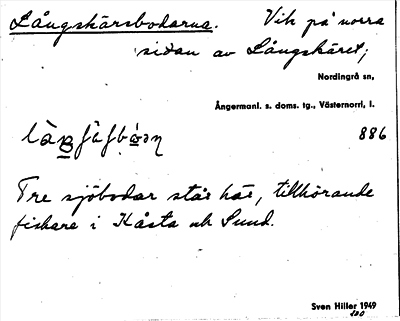 Långskärsbodarna. Vik på norra
sidan av Långskäret;
Nordingrå sn,
Ångermanl. s. doms. tg., Västernorrl, l.
886
Tre sjöbodar står här, tillhörande
fiskare i Kåsta och Sund.
Sven Hiller 1949